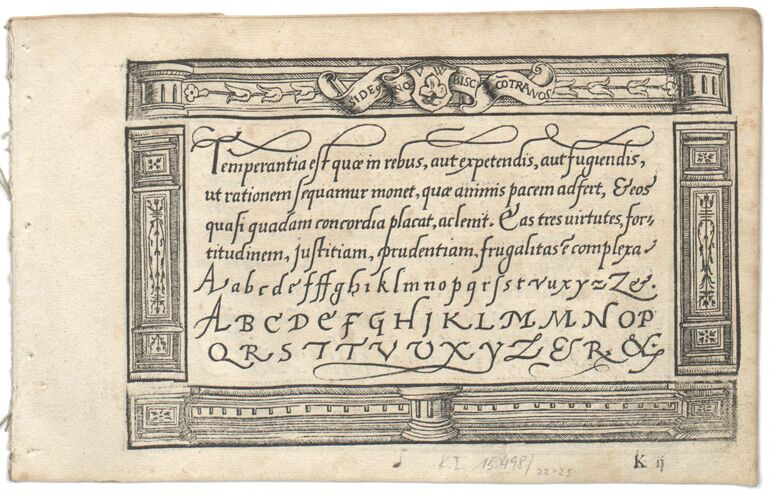 V W
Temperantia est quæ in rebus, aut expetendis, aut fugiendis,
ut rationem sequamur monet, quæ animis pacem adfert, & eos
quasi quadam concordia placat, ac lenit. Eas tres virtutes, for-
titudinem, justitiam, prudentiam, frugalitas ē complexa.
A a b c d e f ff g h i k l m n o p q r s s t v u x y z Z &.
A B C D E F G H J K L M M N O P
Q R S T T V V X Y Z & R. &:
K I. 15.498/22-25
K ij